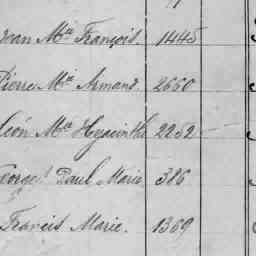 Jean Mie François. 1445
Pierre Mie Armand. 2660
Léon Mie Hyacinthe 2252
Georges Paul Marie. 326
Francis Marie. 1369